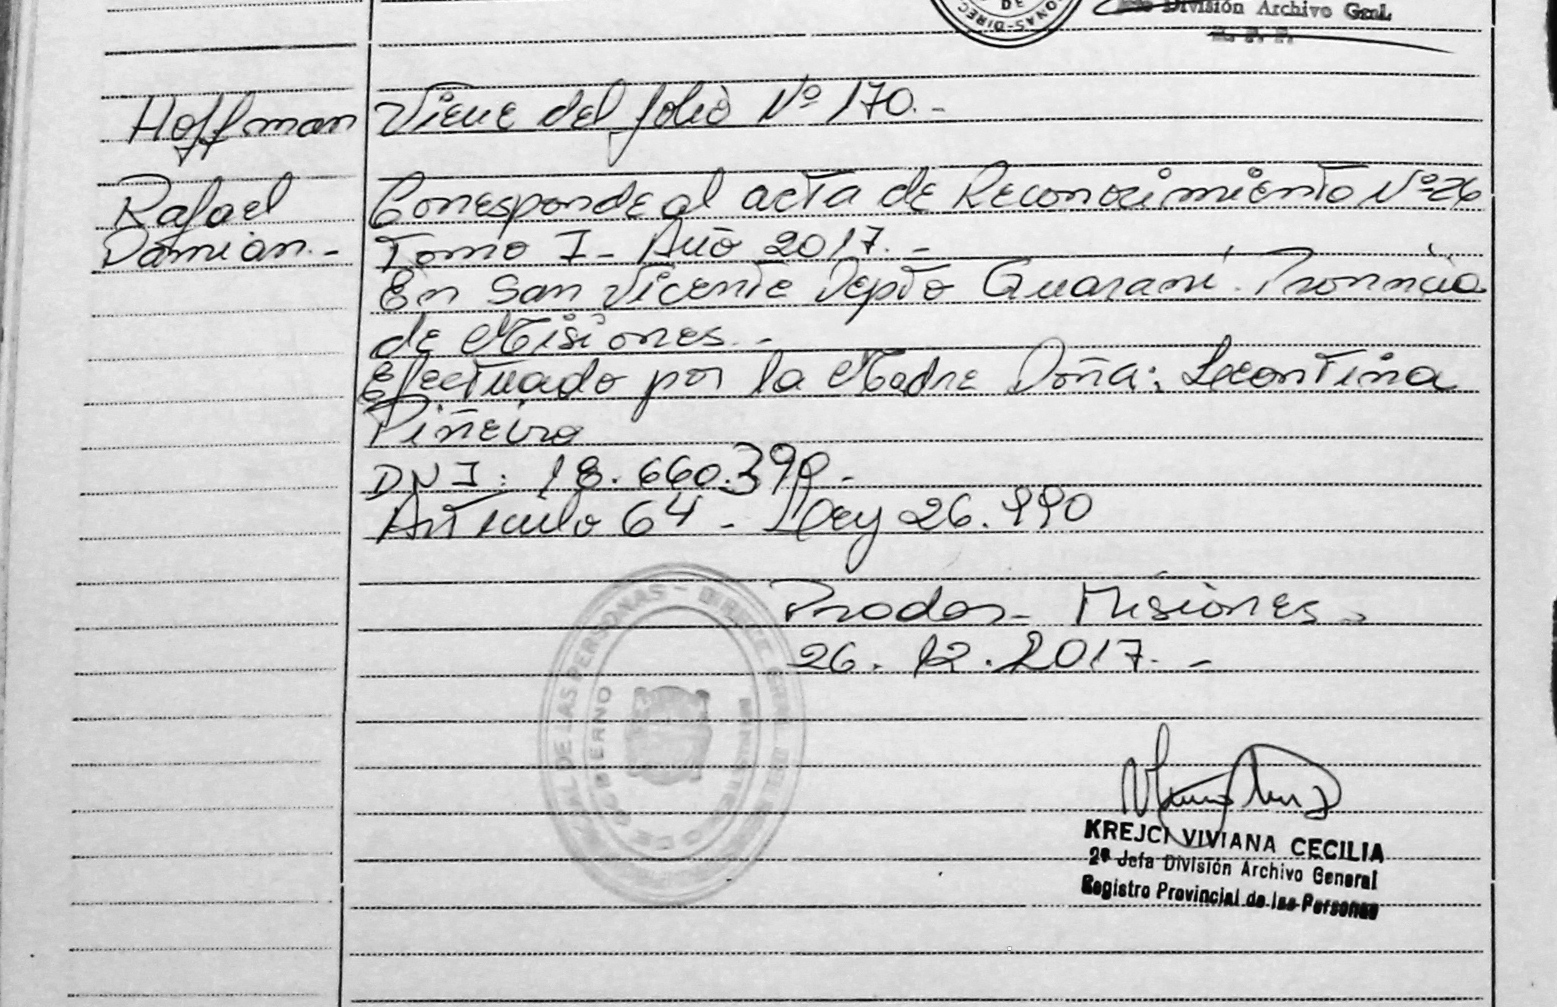 División Archivo Gral.
R. P. P.
Hoffman Viene del folio Nº 170.-
Rafael Corresponde al acta de Reconocimiento Nº 26
Damian.- Tomo I - Año 2017.-
En San Vicente Depto Guaraní. Provincia
de Misiones.-
Efectuado por la Madre Doña: Leontina
Piñeiro
DNI: 18.660.390.-
Artículo 64 - Ley 26.990
Misiones
26.12.2017.-
KREJCI VIVIANA CECILIA
2º Jefa División Archivo General
Registro Provincial de las Personas